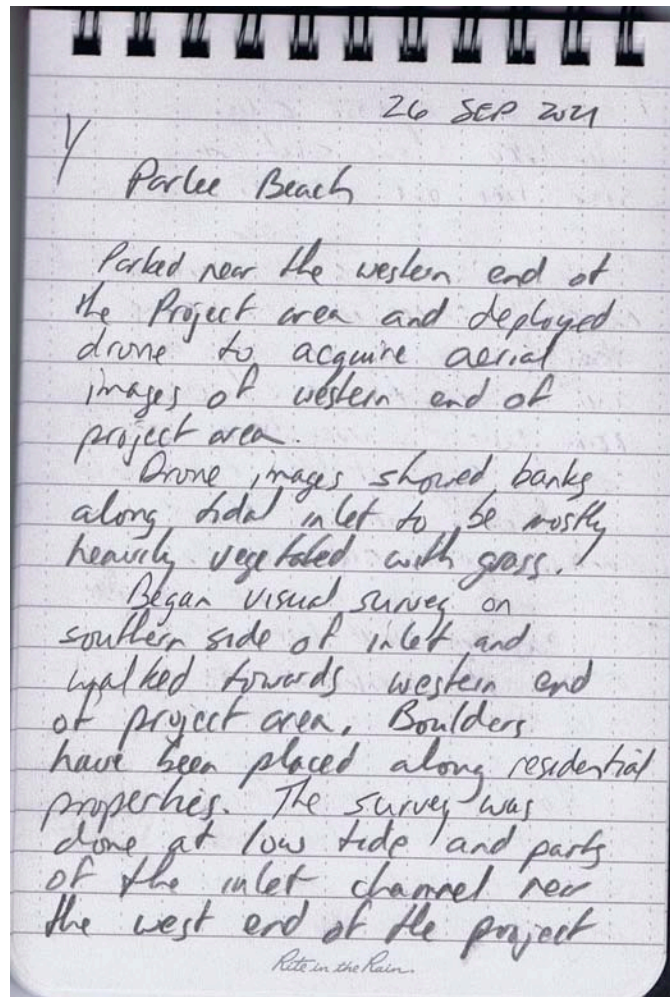 26 SEP 2021
Parlee Beach
Parked near the western end of
the Project area and deployed
drone to acquire aerial
images of western end of
project area.
Drone images showed banks
along tidal inlet to be mostly
heavily vegetated with grass.
Began visual survey on
southern side of inlet and
walked towards western end
of project area. Boulders
have been placed along residential
properties. The survey was
done at low tide and parts
of the inlet channel near
the west end of the project
Rite in the Rain